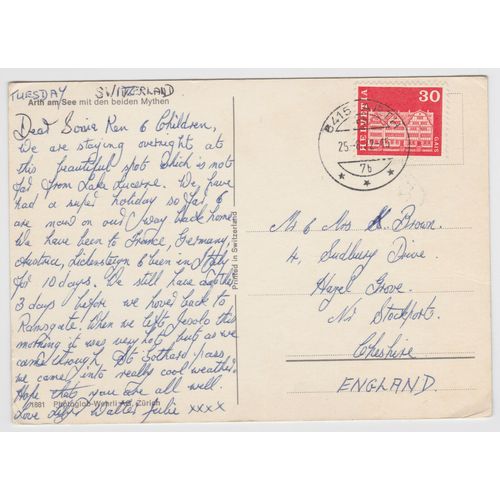 TUESDAY SWITZERLAND
Arth am See mit den beiden Mythen
Dear Ken & Children,
We are staying overnight at
this beautiful spot which is not
far from Lake Lucerne. We have
had a super holiday so far &
are now on our way back home
We have been to France, Germany,
Austria, Lichenstein & been in Italy
for 10 days. We still have another
3 days before we hover back to
Ramsgate. When we left Jesolo this
morning it was very hot, but as we
came through St Gothard pass,
we came into really cool weather.
Hope that you are all well.
1881 Photoglob-Wehrli AG, Zürich
Love Walter Julie xxxx
Printed in Switzerland
HELVETIA
30
GAIS
6415
25.
7b
Mr & Mrs K. Brown.
4, Sudbury Drive.
Hazel Grove.
Nr Stockport.
Cheshire
ENGLAND.